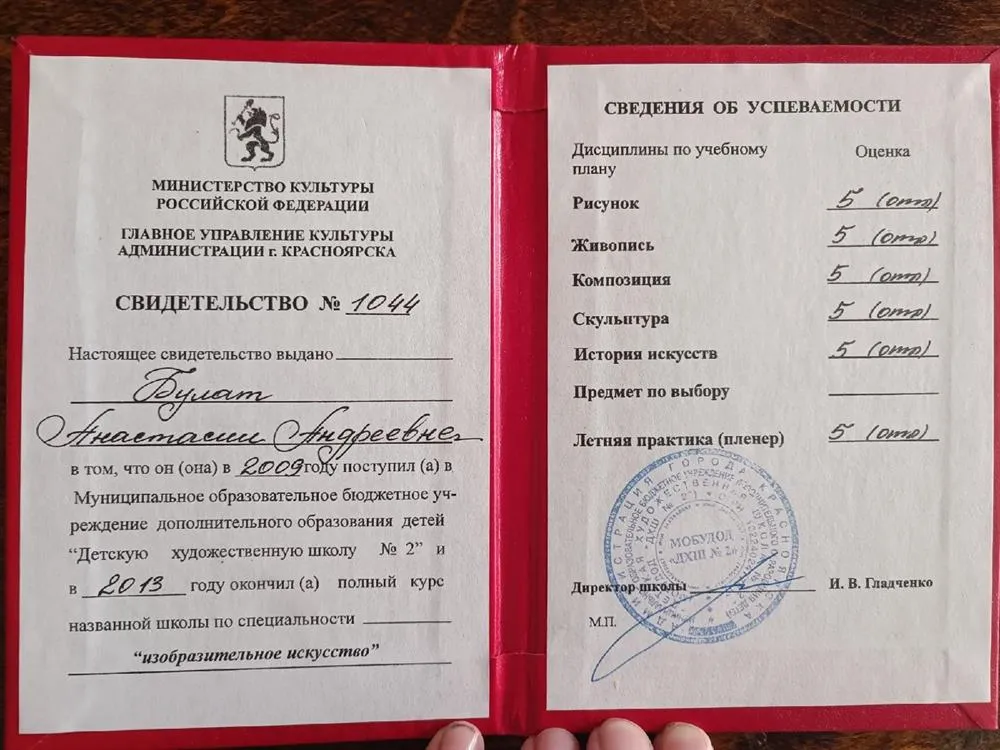 МИНИСТЕРСТВО КУЛЬТУРЫ
РОССИЙСКОЙ ФЕДЕРАЦИИ
ГЛАВНОЕ УПРАВЛЕНИЕ КУЛЬТУРЫ
АДМИНИСТРАЦИИ г. КРАСНОЯРСКА
СВИДЕТЕЛЬСТВО № 1044
Настоящее свидетельство выдано
Булат
Анастасии Андреевне
в том, что он (она) в 2009 году поступил (а) в
Муниципальное образовательное бюджетное уч-
реждение дополнительного образования детей
“Детскую художественную школу № 2” и
в 2013 году окончил (а) полный курс
названной школы по специальности
“изобразительное искусство”
СВЕДЕНИЯ ОБ УСПЕВАЕМОСТИ
Дисциплины по учебному плану Оценка
Рисунок 5 (отл)
Живопись 5 (отл)
Композиция 5 (отл)
Скульптура 5 (отл)
История искусств 5 (отл)
Предмет по выбору
Летняя практика (пленер) 5 (отл)
МОБУДОД
«ДХШ № 2»
Директор школы И. В. Гладченко
М.П.